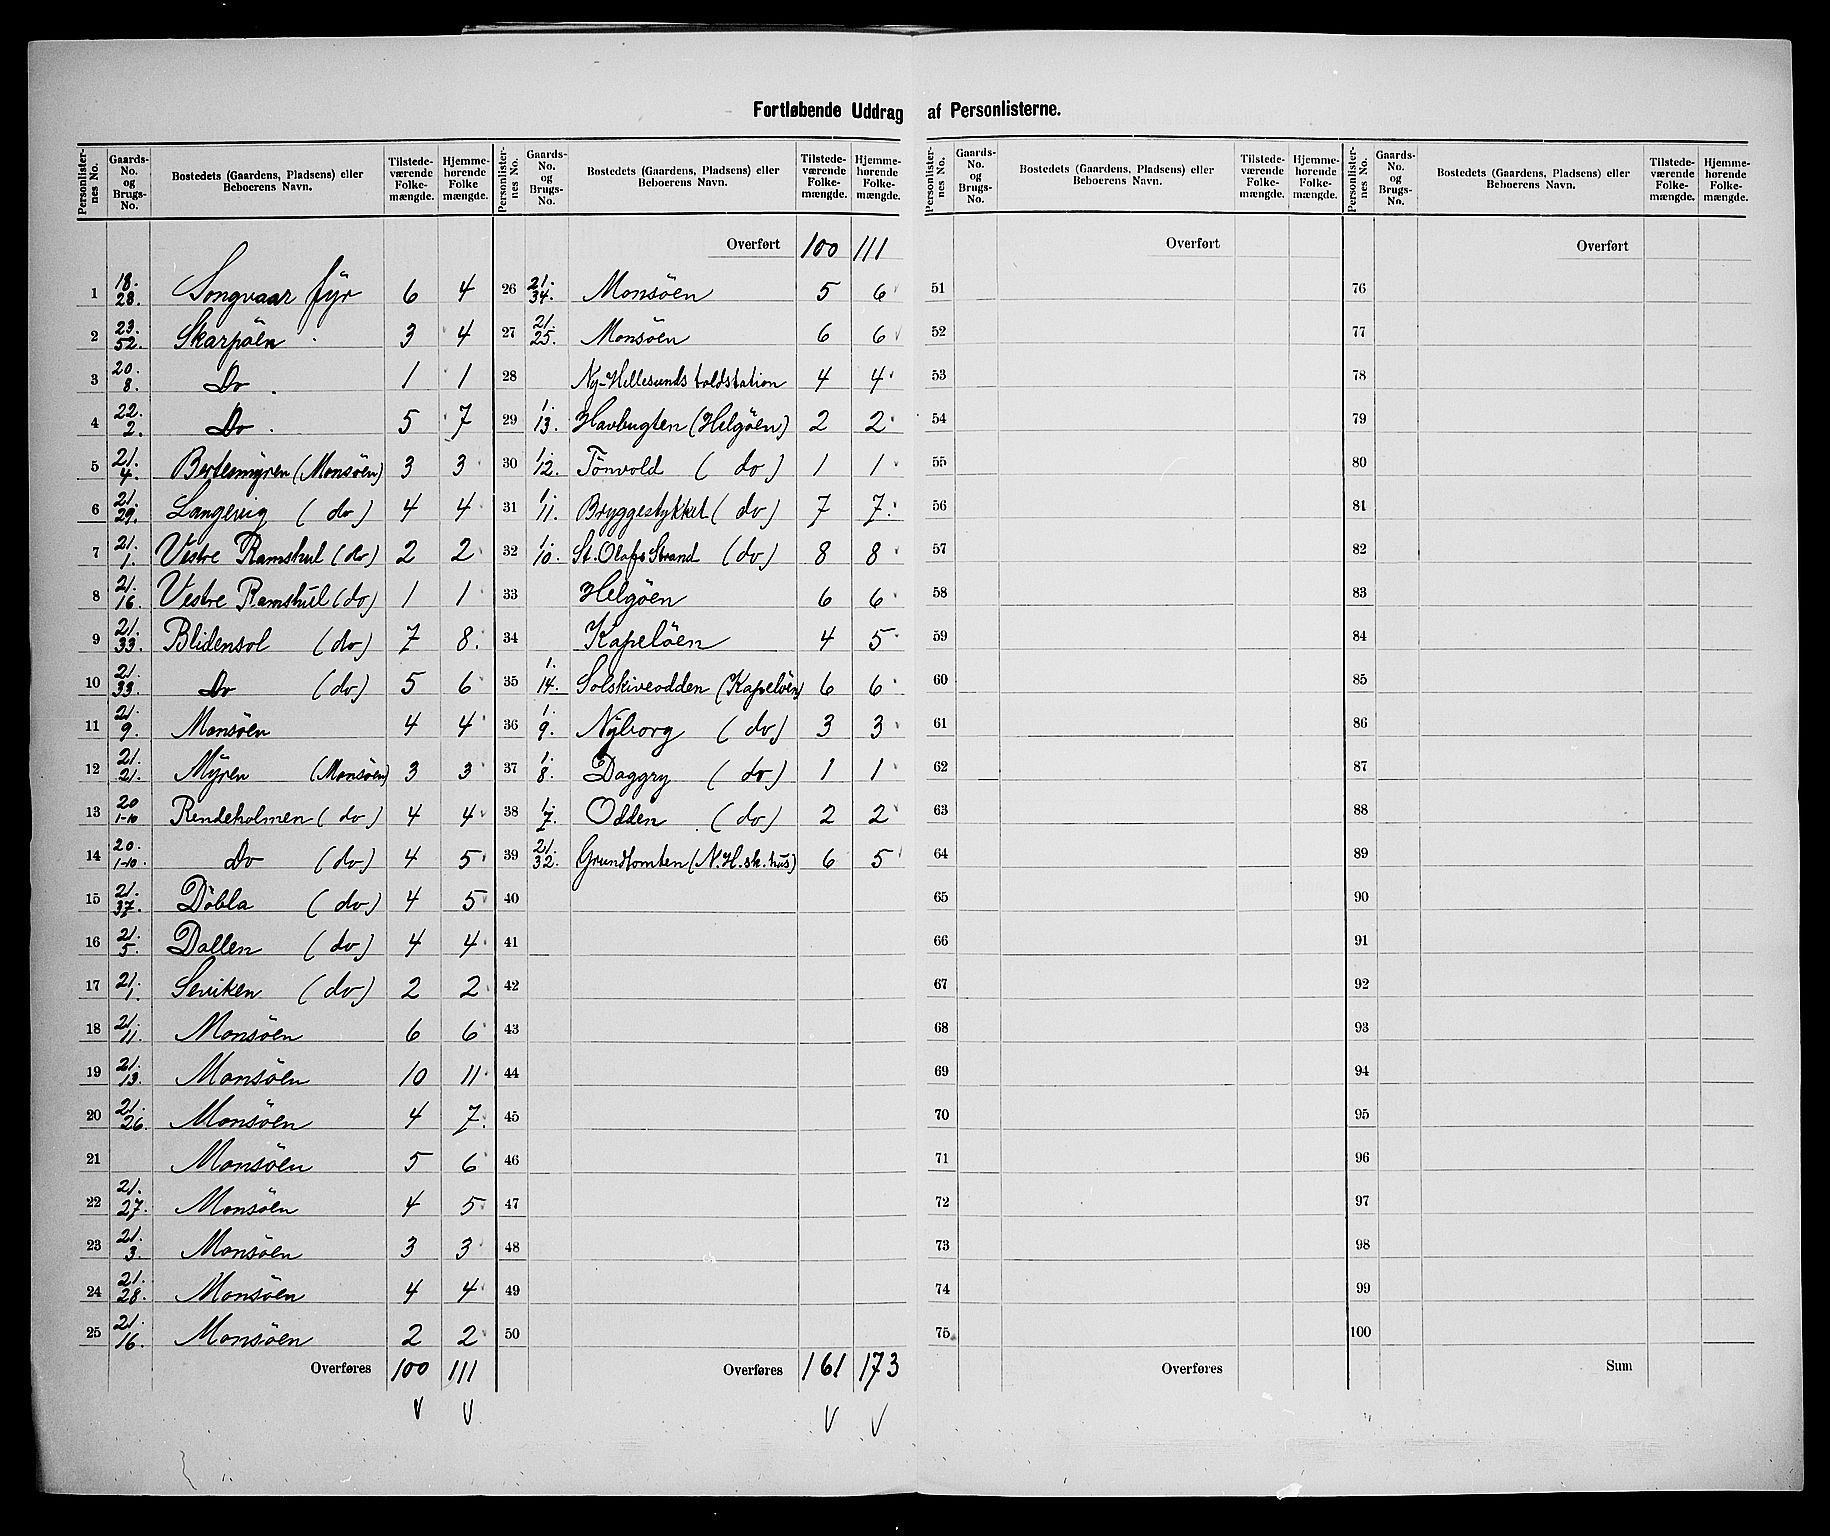 Fortløbende Uddrag af Personlisterne.
Personlister-nes No. | Gaards-No. og Brugs-No. | Bostedets (Gaardens, Pladsens) eller Beboerens Navn. | Tilstede-værende Folke-mængde. | Hjemme-hørende Folke mængde.
1 | 18. 28. | Songvaar fyr | 6 | 4
2 | 23. 52. | Skarpöen | 3 | 4
3 | 20. 8. | Do. | 1 | 1
4 | 22. 2. | Do. | 5 | 7
5 | 21. 4. | Bertesmyren (Monsöen) | 3 | 3
6 | 21. 29. | Langevig (do) | 4 | 4
7 | 21. 1. | Vestre Ramshul (do) | 2 | 2
8 | 21. 16. | Vestre Ramshul (do) | 1 | 1
9 | 21. 33. | Blidensol (do) | 7 | 8.
10 | 21. 33. | Do (do) | 5 | 6
11 | 21. 9. | Monsöen | 4 | 4
12 | 21. 21. | Myren (Monsöen) | 3 | 3
13 | 20 1-10 | Rendeholmen (do) | 4 | 4
14 | 20. 1-10. | Do (do) | 4 | 5
15 | 21. 37. | Döbla (do) | 4 | 5
16 | 21. 5. | Dallen (do) | 4 | 4
17 | 21. 1. | Seviken (do) | 2 | 2
18 | 21. 11. | Monsöen | 6 | 6
19 | 21. 13. | Monsöen | 10 | 11
20 | 21. 26. | Monsöen | 4 | 7.
21 | Monsöen | 5 | 6
22 | 21. 27. | Monsöen | 4 | 5
23 | 21. 3. | Monsöen | 3 | 3
24 | 21. 28. | Monsöen | 4 | 4
25 | 21. 16. | Monsöen | 2 | 2
Overføres | 100 | 111
Personlister-nes No. | Gaards-No. og Brugs-No. | Bostedets (Gaardens, Pladsens) eller Beboerens Navn. | Tilstede-værende Folke-mængde. | Hjemme-hørende Folke-mængde.
Overført | 100 | 111
26 | 21. 34. | Monsöen | 5 | 6
27 | 21. 25. | Monsöen | 6 | 6
28 | Ny-Hellesunds toldstation | 4 | 4
29 | 1. 13. | Havbugten (Helgöen) | 2 | 2
30 | 1. 12. | Tönvold (do) | 1 | 1
31 | 1. 11. | Bryggestykket (do) | 7 | 7.
32 | 1. 10. | St. Olafs Strand (do) | 8 | 8
33 | Helgöen | 6 | 6
34 | Kapelöen | 4 | 5
35 | 1. 14. | Solskiveodden (Kapelöen) | 6 | 6
36 | 1. 9. | Nyborg (do) | 3 | 3
37 | 1. 8. | Daggry (do) | 1 | 1
38 | 1. 7. | Odden (do) | 2 | 2
39 | 21. 32. | Grundtomten (N.H.sk.hus) | 6 | 5
40
41
42
43
44
45
46
47
48
49
50
Overføres | 161 | 173
Personlister-nes No. | Gaards-No. og Brugs-No. | Bostedets (Gaardens, Pladsens) eller Beboerens Navn. | Tilstede-værende Folke-mængde. | Hjemme-hørende Folke-mængde.
Overført
51
52
53
54
55
56
57
58
59
60
61
62
63
64
65
66
67
68
69
70
71
72
73
74
75
Overføres
Personlister-nes No. | Gaards-No. og Brugs-No. | Bostedets (Gaardens, Pladsens) eller Beboerens Navn. | Tilstede-værende Folke-mængde. | Hjemme-hørende Folke-mængde.
Overført
76
77
78
79
80
81
82
83
84
85
86
87
88
89
90
91
92
93
94
95
96
97
98
99
100
Sum